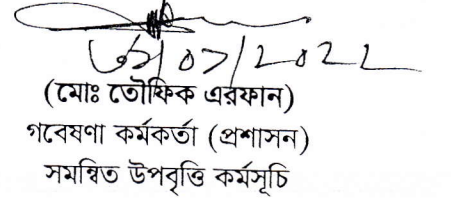 (মোঃ তৌফিক এরফান)
গবেষণা কর্মকর্তা (প্রশাসন)
সমন্বিত উপবৃত্তি কর্মসূচি